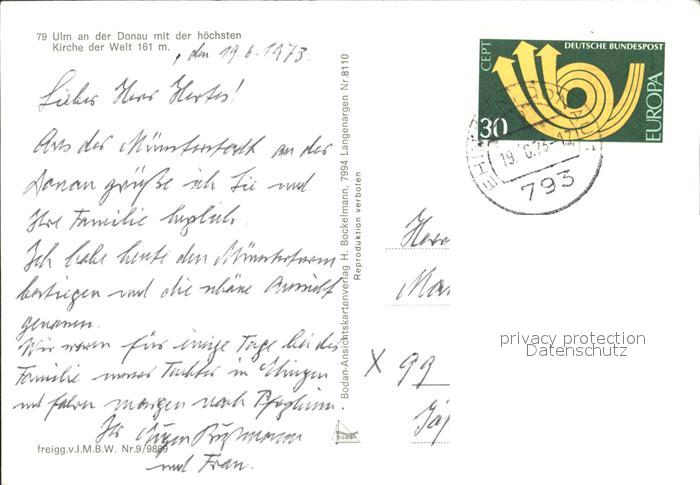 79 Ulm an der Donau mit der höchsten
Kirche der Welt 161 m.
, den 19.6.1973.
Lieber Herr Hertes!
Aus der Münsterstadt an der
Donau grüße ich Sie und
Ihre Familie herzlich.
Ich habe heute den Münsterturm
bestiegen und die schöne Aussicht
genossen.
Wir waren für einige Tage bei der
Familie unserer Tochter in Ehingen
und fahren morgen nach Pforzheim.
Ihr Eugen
und Frau.
freigg.v.I.M.B.W. Nr.9/9869
Bodan-Ansichtskartenverlag H. Bockelmann, 7994 Langenargen Nr.8110
Reproduktion verboten
bodan
CEPT
DEUTSCHE BUNDESPOST
EUROPA
30
19.6.73-17
793
Herr
X 99
privacy protection
Datenschutz